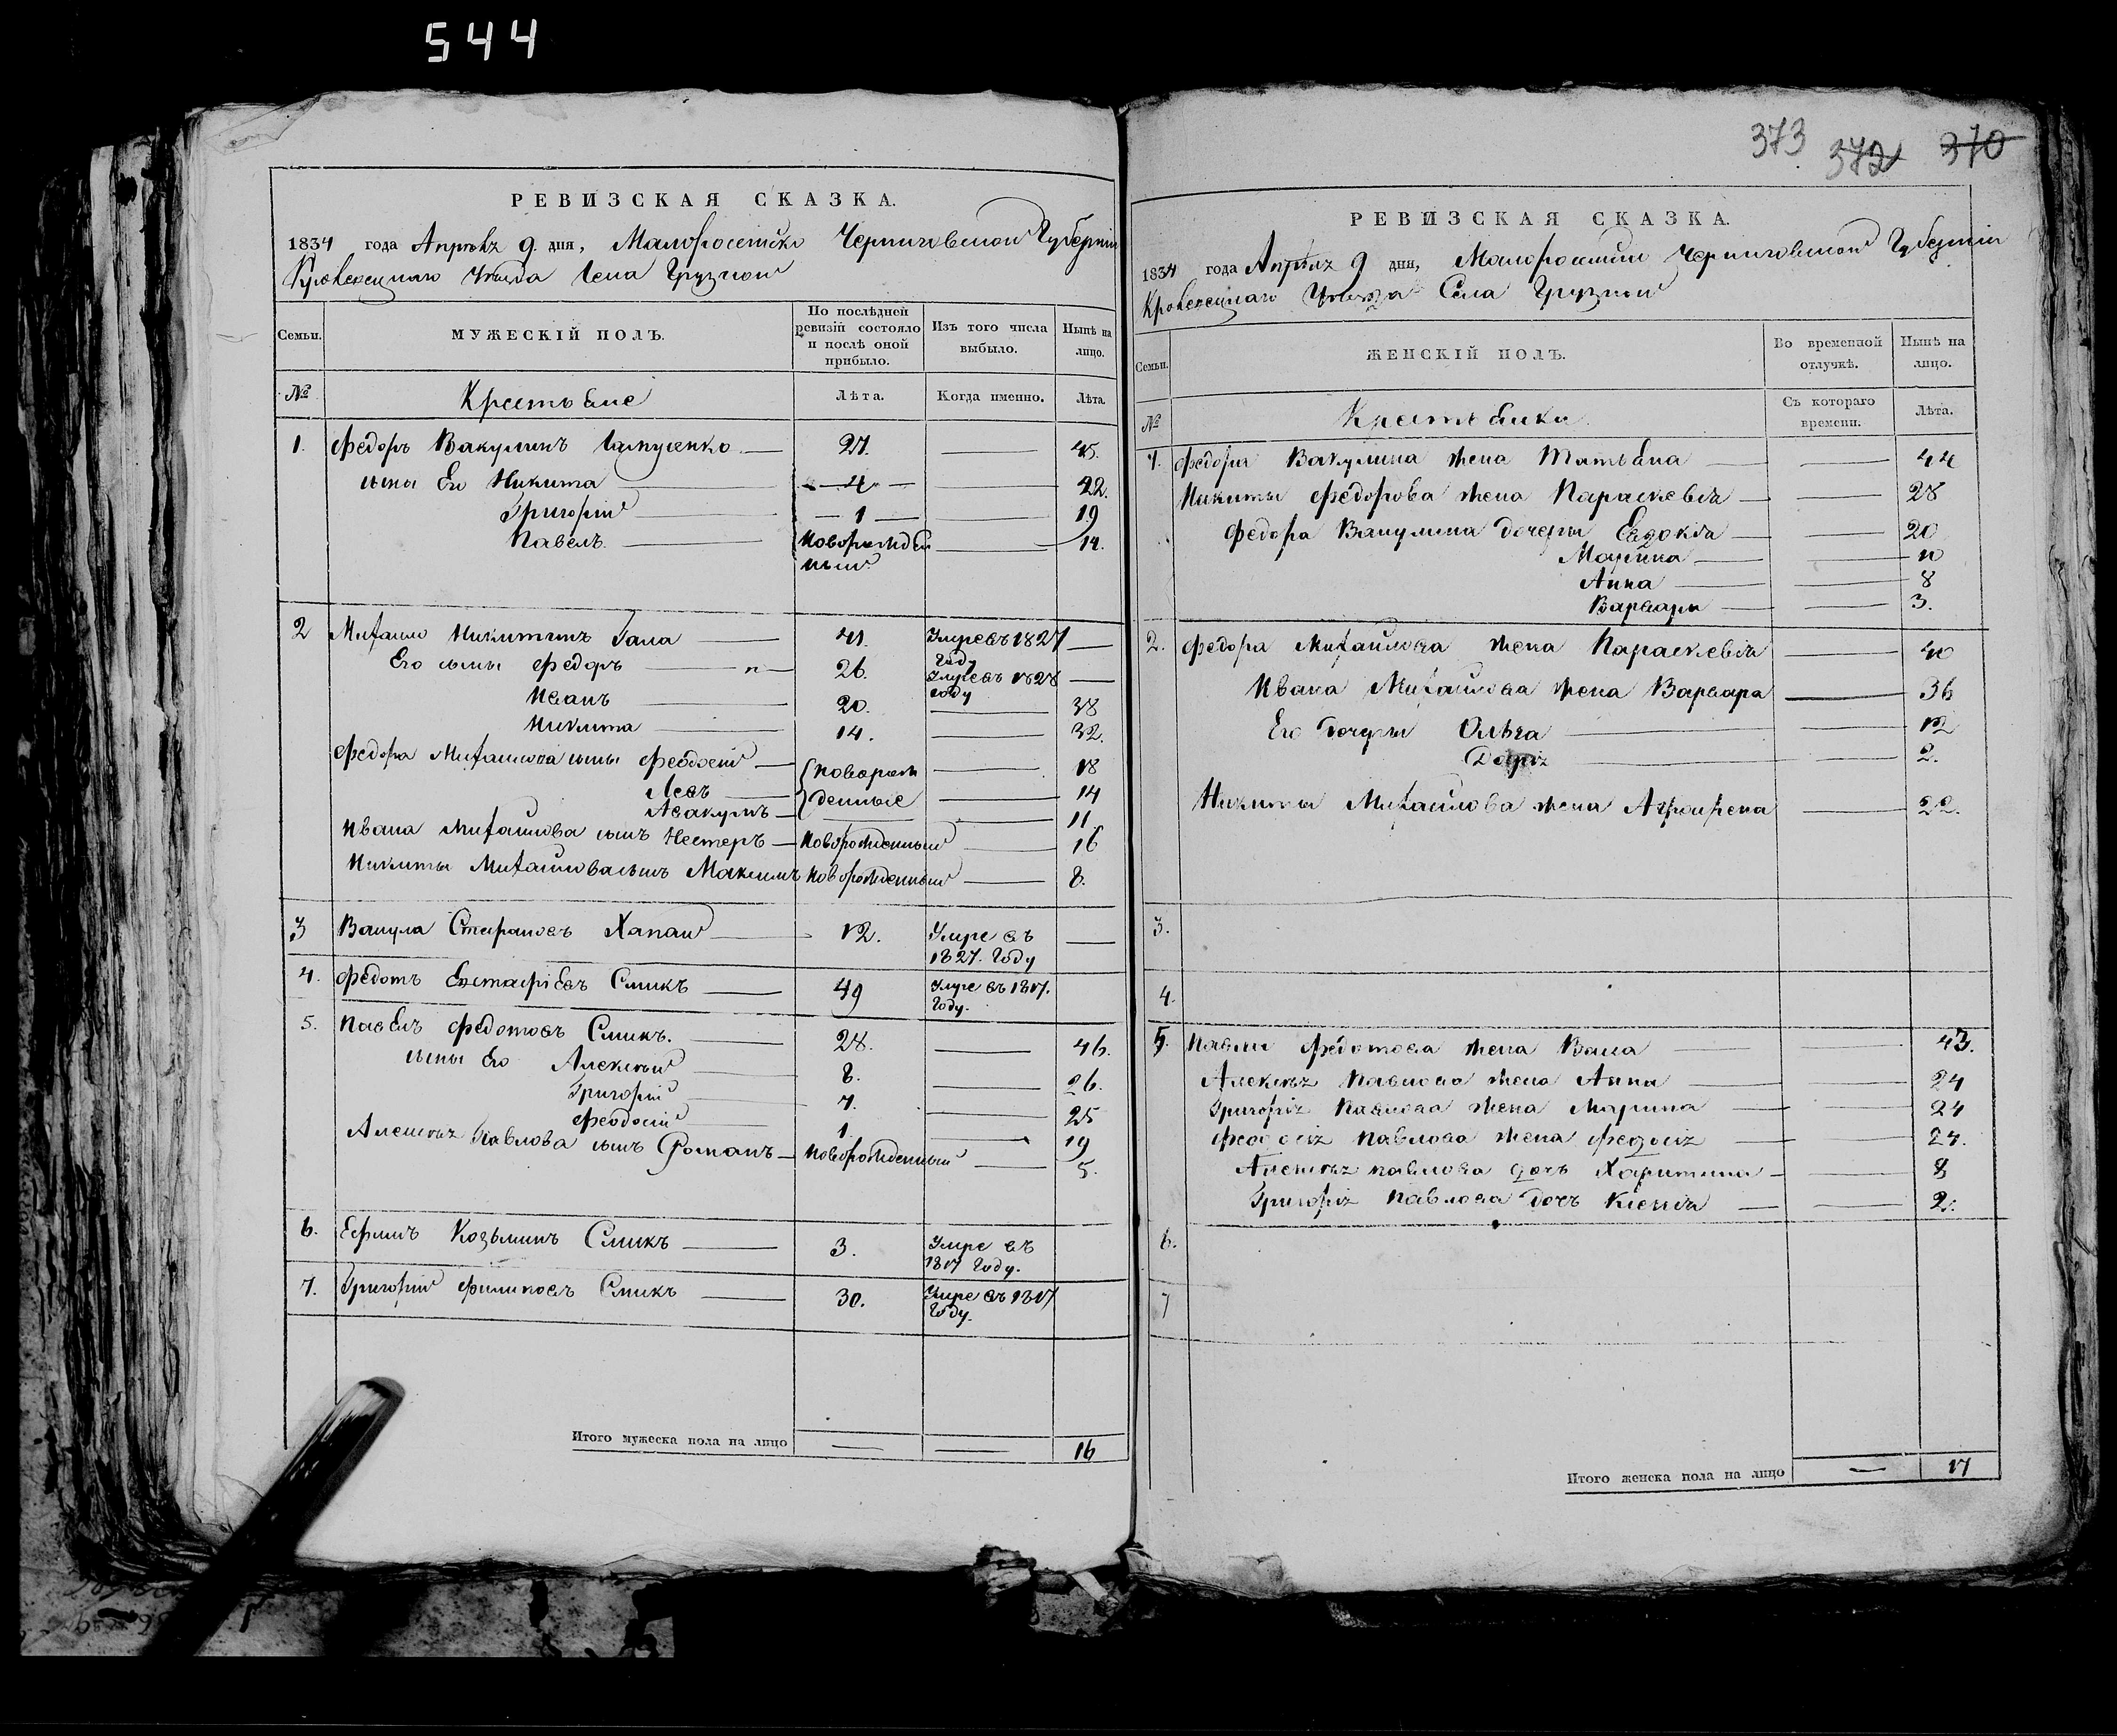 544
373 372 370
РЕВИЗСКАЯ СКАЗКА.
1834 года Апрѣля 9 дня, Малоросейско Черниговской Губерніи
Кролевецкаго Уѣзда Села Грузкой
Семьи.
МУЖЕСКІЙ ПОЛЪ.
По послѣдней ревизіи состояло и послѣ оной прибыло.
Изъ того числа выбыло.
Нынѣ на лицо.
№
Крестьяне
Лѣта.
Когда именно.
Лѣта.
1. Федоръ Вакулинъ 27. 45.
сыны Его Никита 4 22.
Григорій 1 19
Павелъ новорожден 14.
ный
2 Михайло Никитинъ Гала 41. Умре въ 1827
году
Его сыны Федоръ 26. Умре въ 1828
году
Иванъ 20. 38
Никита 14. 32.
Федора Михайлова сыны Феодосій новорож 18
Левъ денные 14
Авакумъ 11.
Ивана Михайлова сынъ Нестеръ Новорожденный 16
Никиты Михайлова сынъ Максимъ новорожденный 8.
3 Вакула Стефановъ Хапай 12. Умре въ
1827. Году
4. Федотъ Евстафіевъ Смикъ 49 Умре въ 1817.
Году.
5. Павелъ Федотовъ Смикъ. 28. 46.
сыны Его Алексѣй 8. 26.
Григорій 7. 25
Феодосій 1. 19
Алексѣя Павлова сынъ Романъ новорожденный 5.
6. Ефимъ Козьминъ Смикъ 3. Умре въ
1817 Году.
7. Григорій Филиповъ Смикъ 30. Умре въ 1817
Году.
Итого мужеска пола на лицо 16
РЕВИЗСКАЯ СКАЗКА.
1834 года Апрѣля 9 дня, Малоросійской Черниговской Губерніи
Кролевецкаго Уѣзда Села Грузкой
Семьи.
ЖЕНСКІЙ ПОЛЪ.
Во временной отлучкѣ.
Нынѣ на лицо.
№
Крестьянки
Съ котораго времени.
Лѣта.
1. Федора Вакулина жена Татьяна 44
Никиты Федорова жена Параскевія 28
Федора Вакулина дочери Евдокія 20
Марина 10
Анна 8
Варвара 3.
2. Федора Михайлова жена Параскевія 40
Ивана Михайлова жена Варвара 36
Его дочери Ольга 12
Дарія 2.
Никиты Михайлова жена Агрипена 22.
3.
4.
5. Павла Федотова жена Васа 43.
Алексѣя Павлова жена Анна 24
Григорія Павлова жена Марина 24
Феодосія Павлова жена Федосія 24.
Алексѣя Павлова дочь Харитина 8
Григорія Павлова дочь Ксенія 2.
6.
7
Итого женска пола на лицо 17